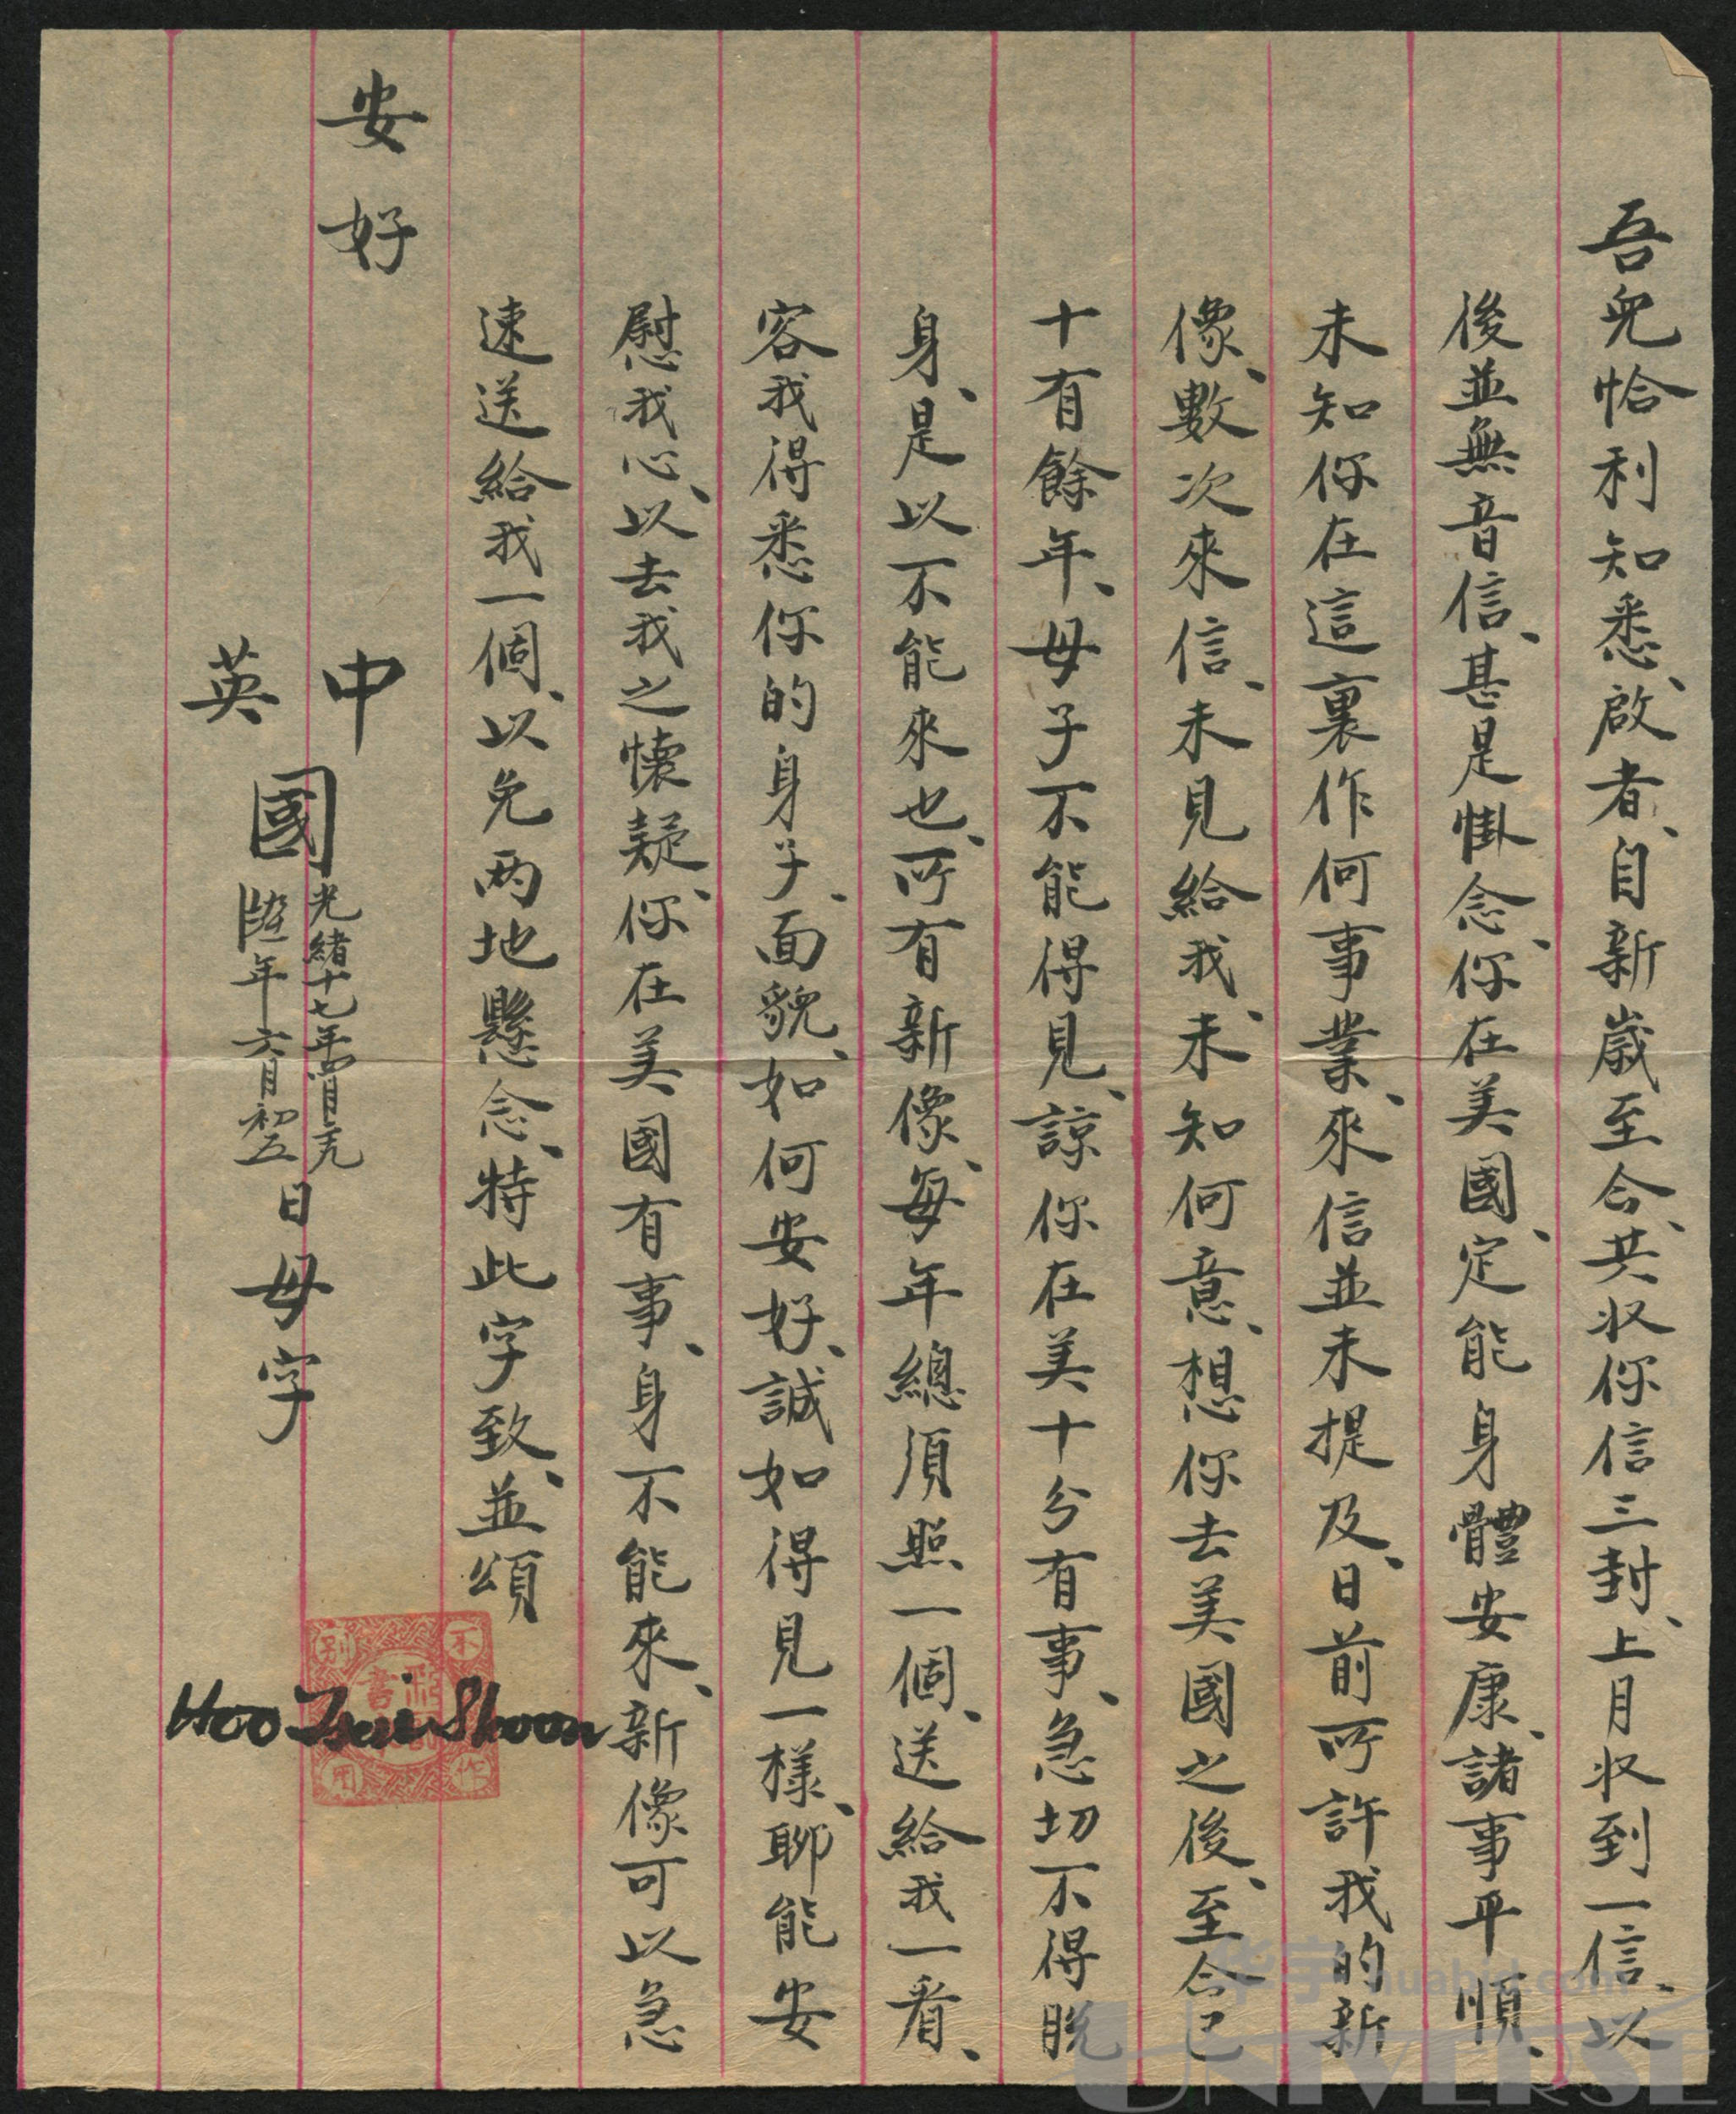 吾兒恰利知悉、啟者、自新歲至今、共収你信三封、上月収到一信、以
後並無音信、甚是掛念、你在美國、定能身體安康、諸事平順、
未知你在這裏作何事業、來信並未提及、日前所許我的新
像、數次來信、未見給我、未知何意、想你去美國之後、至今已
十有餘年、母子不能得見、諒你在美十分有事、急切不得脫
身、是以不能來也、所有新像、每年總須照一個、送給我一看、
容我得悉你的身子、面貌、如何安好、誠如得見一樣、聊能安
慰我心、以去我之懐疑、你在美國有事、身不能來、新像可以急
速送給我一個、以免两地懸念、特此字致、並頌
安好
中
英
國
光緒十七年四月二九
陸年六月初五
日母字
Hoo Tsai Shoon
不作別用
華宇 huabid.com
UNIVERSE